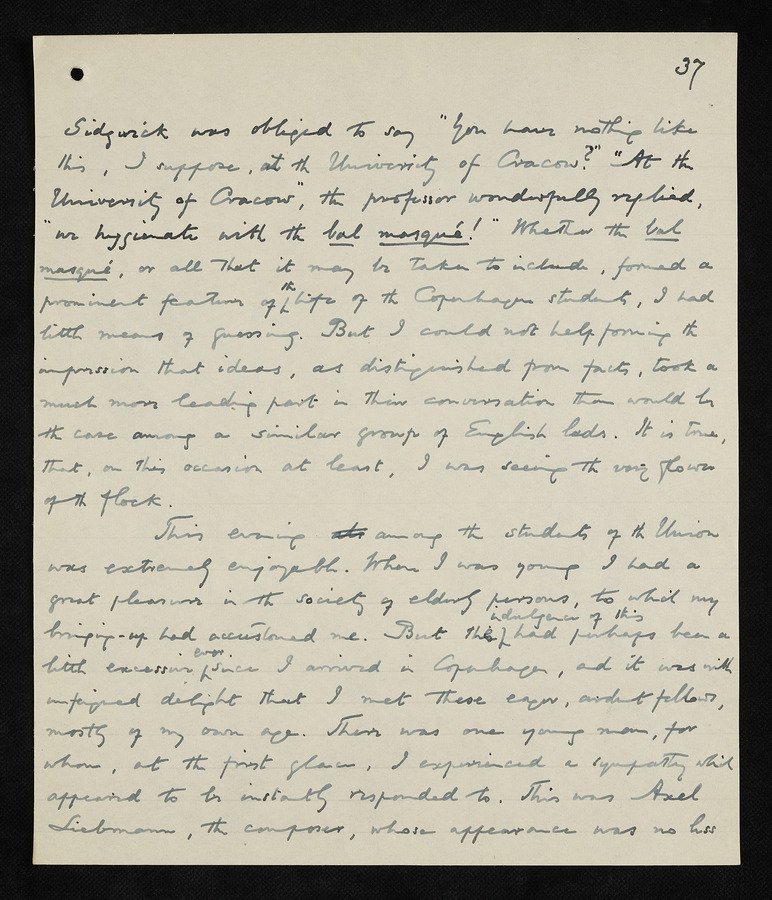 37
Sidgwick was obliged to say "You have nothing like
this, I suppose, at the University of Cracow?" "At the
University of Cracow", the professor wonderfully replied,
"we hygienate with the bal masqué!" Whether the bal
masqué, or all that it may be taken to include, formed a
prominent feature of the life of the Copenhagen students, I had
little means of guessing. But I could not help forming the
impression that ideas, as distinguished from facts, took a
much more leading part in their conversation than would be
the case among a similar group of English lads. It is true,
that, on this occasion at least, I was seeing the very flower
of the flock.
This evening among the students of the Union
was extremely enjoyable. When I was young I had a
great pleasure in the society of elderly persons, to which my
bringing-up had accustomed me. But the indulgence of this had perhaps been a
little excessive ever since I arrived in Copenhagen, and it was with
unfeigned delight that I met these eager, ardent fellows,
mostly of my own age. There was one young man, for
whom, at the first glance, I experienced a sympathy which
appeared to be instantly responded to. This was Axel
Liebmann, the composer, whose appearance was no less